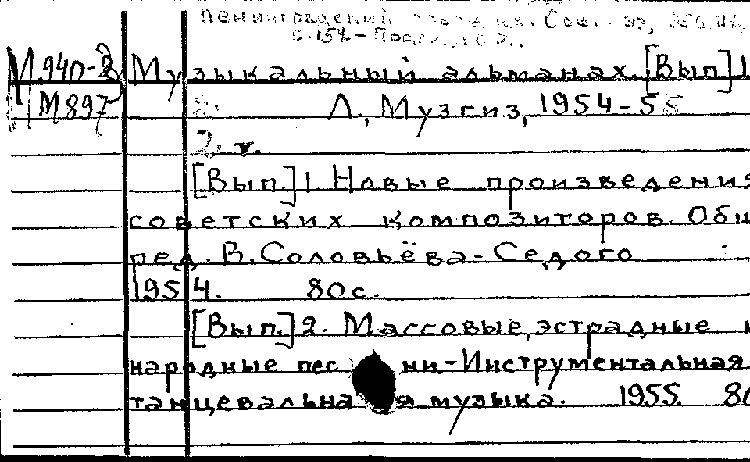 Ленинградский
М 940-2 Музыкальный альманах. [Вып] 1
М 897 Л., Музгиз, 1954-55
2 т.
[Вып.] 1. Новые произведения
советских композиторов. Общ
ред. В. Соловьёва-Седого
1954. 80с.
[Вып.] 2. Массовые, эстрадные
народные песни-Инструментальная
танцевальная музыка. 1955. 80